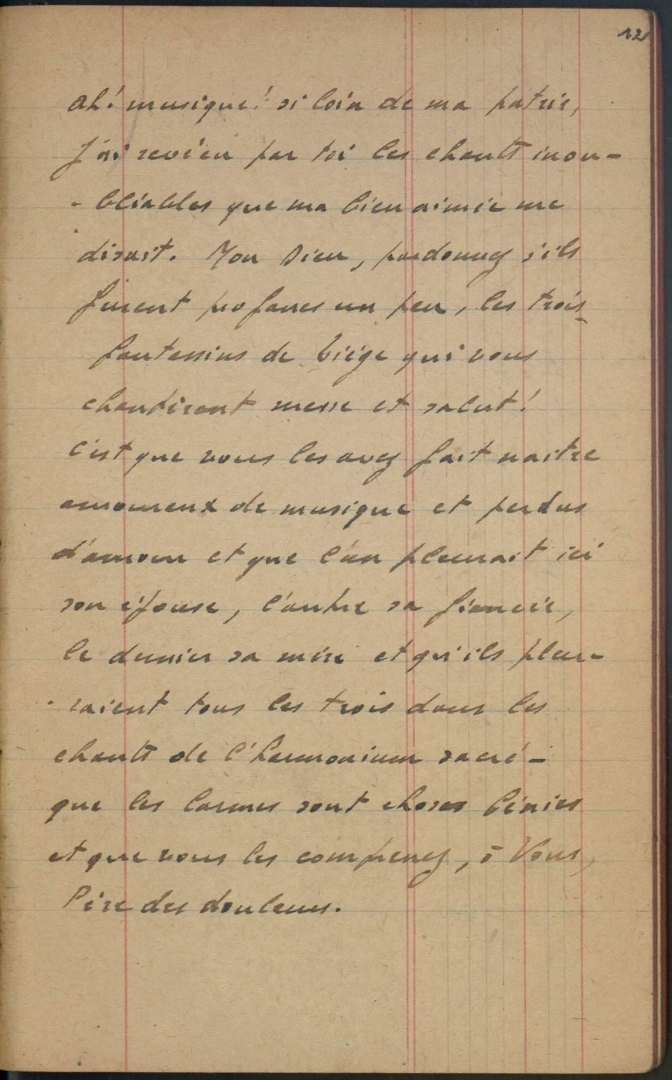 12
Ah! musique! si loin de ma patrie,
J'ai revécu par toi les chants inou-
- bliables que ma bien aimée me
disait. Mon Dieu, pardonnez s'ils
furent profanes un peu, les trois
fantassins de Liége qui vous
chantèrent messe et salut!
C'est que vous les avez fait naitre
amoureux de musique et perdus
d'amour et que l'un pleurait ici
son épouse, l'autre sa fiancée,
le dernier sa mère et qu'ils pleu-
- raient tous les trois dans les
chants de l'harmonium sacré -
que les larmes sont choses bénies
et que vous les comprenez, ô Vous,
Père des douleurs.